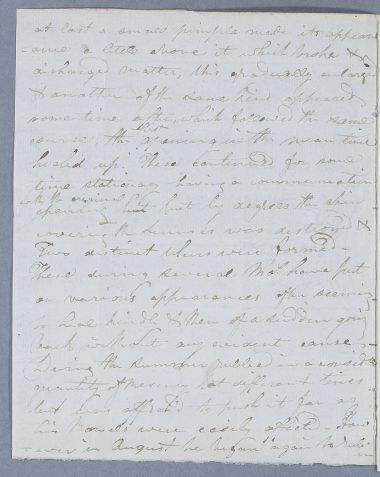 at last a small pimple made its appear-
-ance a little above it which broke &
discharged matter, this gradually enlarged
& another of the same kind appeared
some time after, which followed the same
course; the first opening in the mean time
healed up. These continued for some
time stationary having a communication
with the original opening but by degrees the skin
covering the sinuses was destroyed &
Two distinct ulcers were formed-
These during several Months have put
on various appearances often seeming
to heal kindly & then of a sudden going
back without any evident cause.
During the summer rubbed in a consid
quantity of Mercury at different times
but was afraid to push it far as
his bowels were easily affected- How
ever in August he began again to rub
in